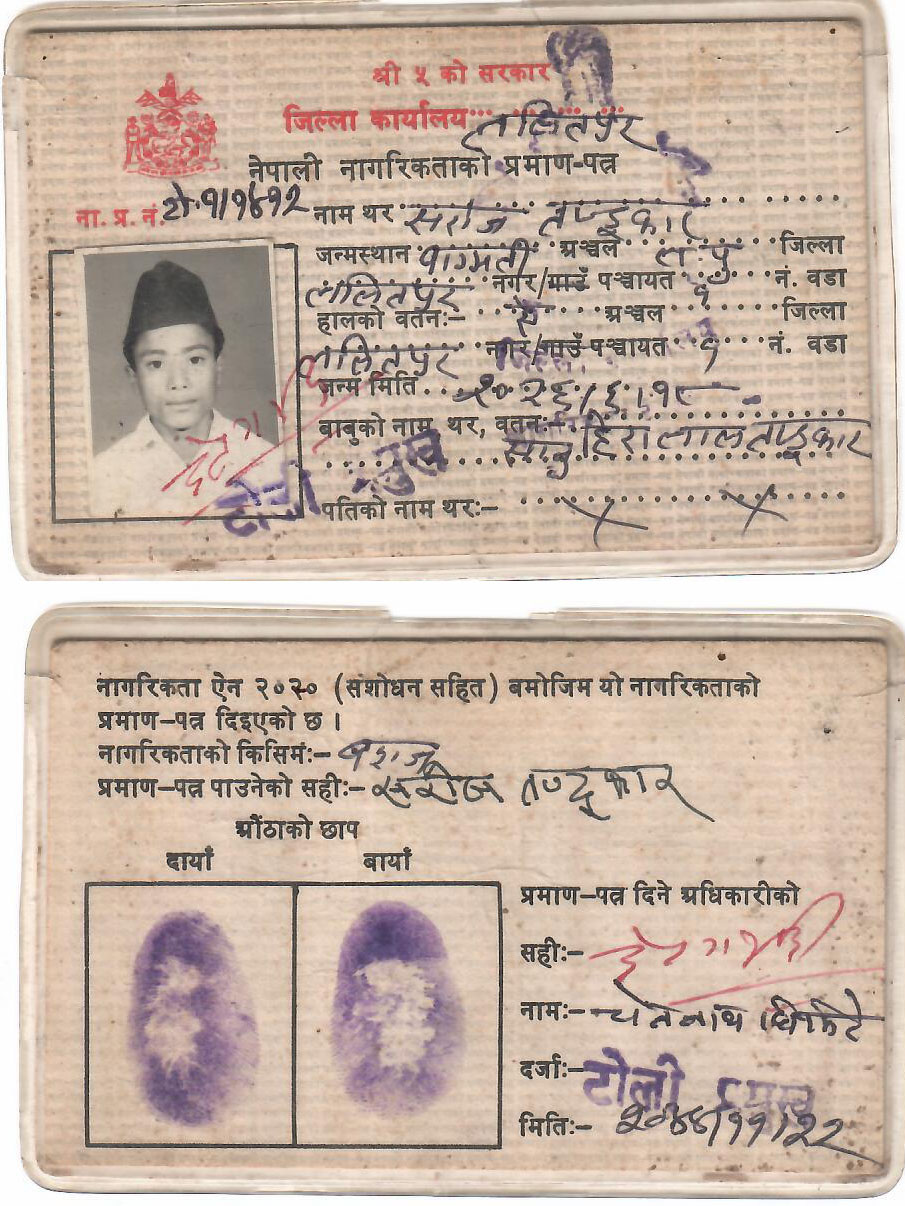 श्री ५ को सरकार
जिल्ला कार्यालय ललितपुर
नेपाली नागरिकताको प्रमाण-पत्र
ना. प्र. नं.
नाम थर सरोज तण्डूकार
जन्मस्थान वाग्मती अञ्चल ल.पु. जिल्ला
ललितपुर नगर/गाउँ पञ्चायत १ नं. वडा
हालको वतन:- ऐ अञ्चल जिल्ला
ललितपुर नगर/गाउँ पञ्चायत १ नं. वडा
जन्म मिति २०२६।६।१८
बाबुको नाम थर, वतन:-
हिरालाल तण्डूकार
पतिको नाम थर:- × ×
टोली प्रमुख
नागरिकता ऐन २०२० (संशोधन सहित) बमोजिम यो नागरिकताको
प्रमाण-पत्र दिइएको छ ।
नागरिकताको किसिमः- वंशज
प्रमाण-पत्र पाउनेको सही:- सरोज तण्डूकार
औंठाको छाप
दायाँ बायाँ
प्रमाण-पत्र दिने अधिकारीको
सही:-
नाम:-
दर्जा:- टोली प्रमुख
मिति:- २०४४/११/२२